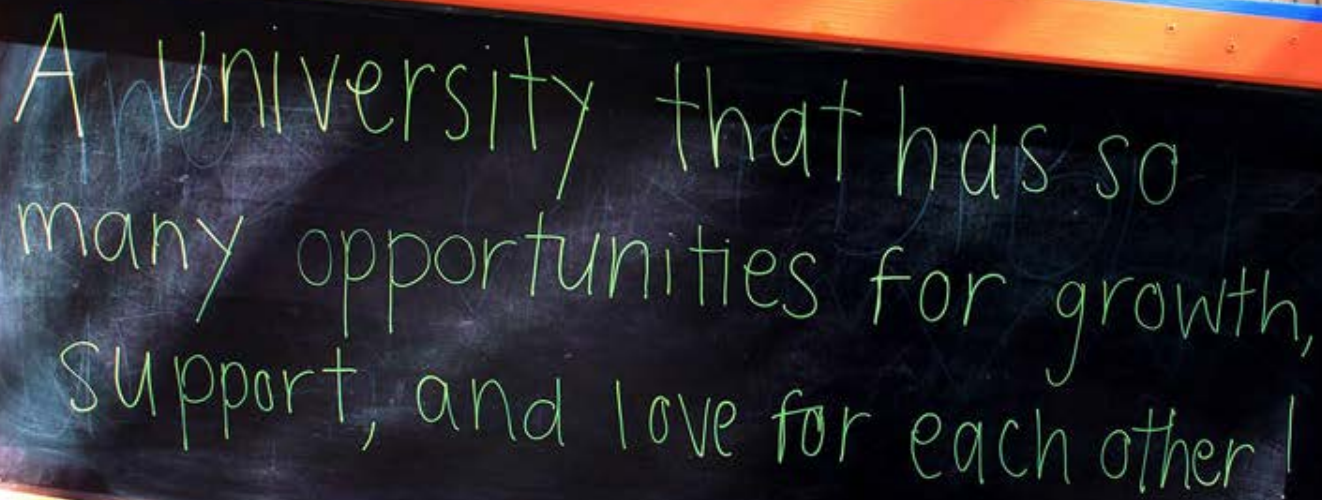 A University that has so
many opportunities for growth,
support, and love for each other!